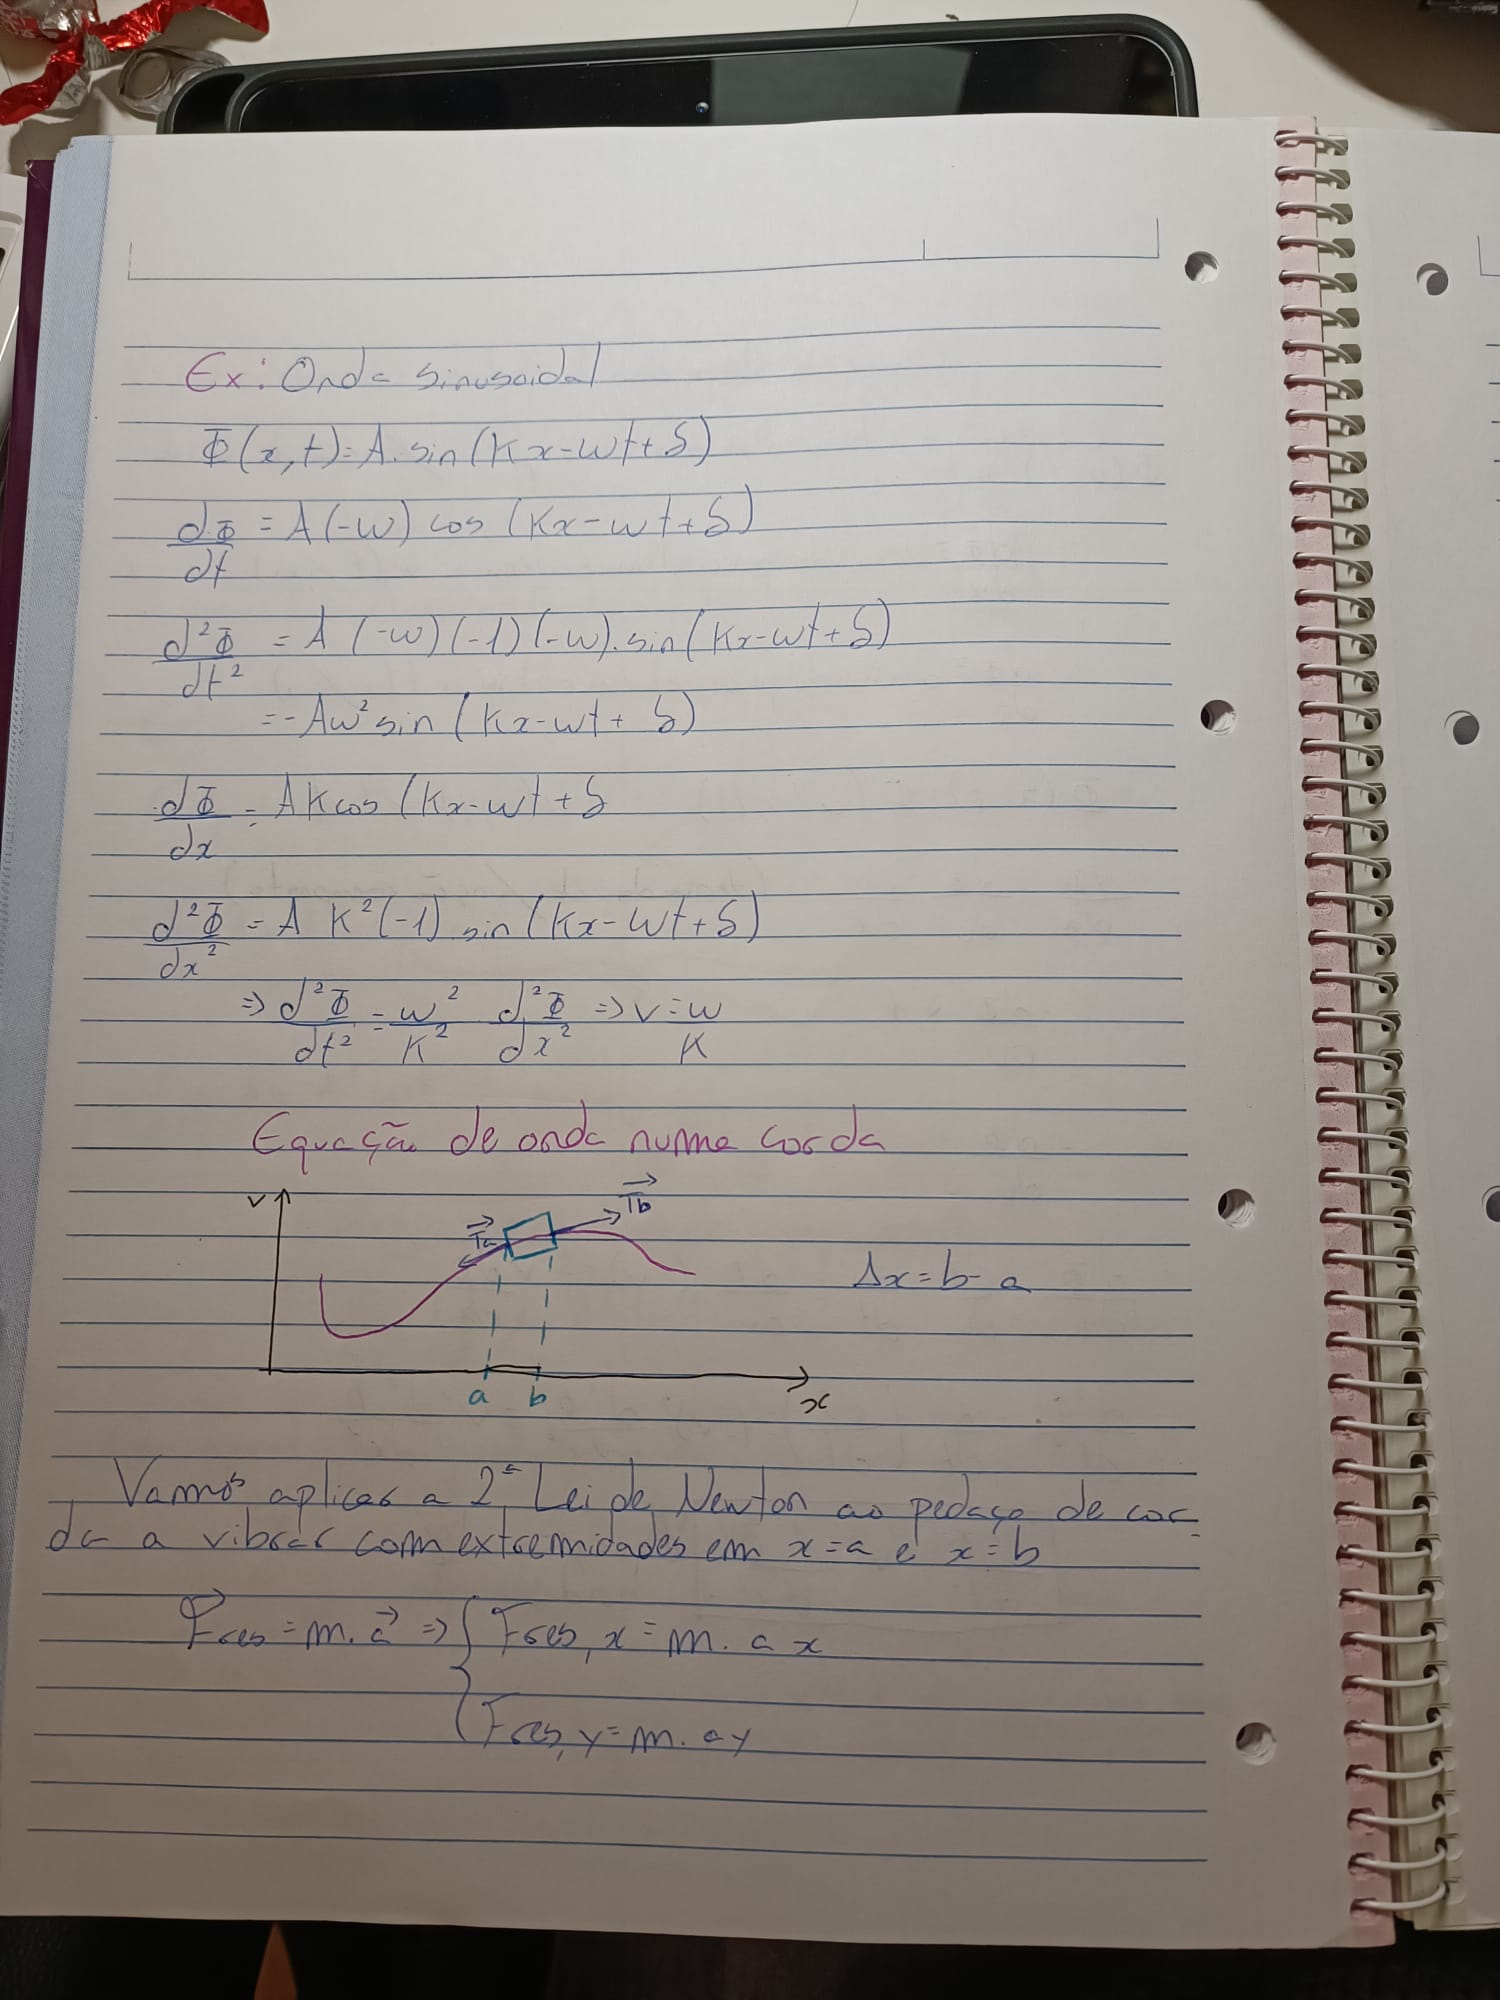 Ex: Onda sinusoidal
Φ(x,t)=A.sin(Kx-wt+δ)
dΦ/dt = A(-w) cos (Kx-wt+δ)
d²Φ/dt² = A (-w)(-1)(-w).sin(Kx-wt+δ)
=-Aw² sin (Kx-wt+δ)
dΦ/dx = AKcos (Kx-wt+δ
d²Φ/dx² = A K²(-1) sin(Kx-wt+δ)
=> d²Φ/dt² = w²/K² d²Φ/dx² => v=w/K
Equação de onda numa corda
y
Ta
Tb
Δx=b-a
a b
x
Vamos aplicar a 2ª Lei de Newton ao pedaço de cor-
da a vibrar com extremidades em x=a e x=b
Fres=m.a => { Fres,x=m.ax
Fres,y=m.ay